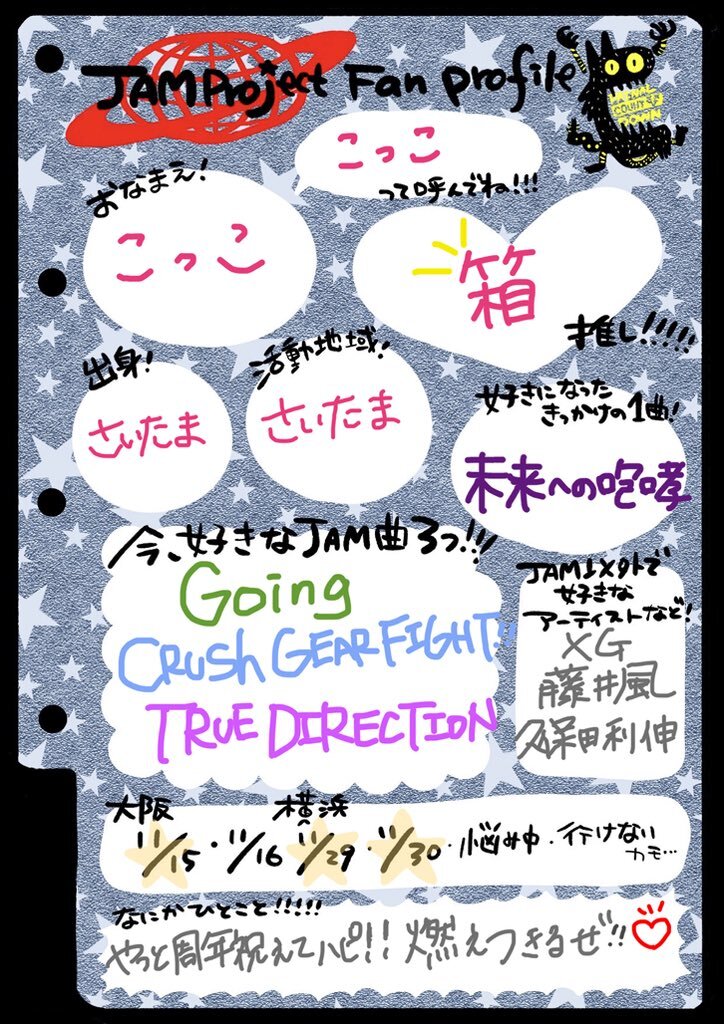 JAM Project Fan profile
こっこ
って呼んでね!!!
おなまえ!
こっこ
箱
推し!!!!!
出身!
さいたま
活動地域!
さいたま
好きになった
きっかけの1曲!
未来への咆哮
今、好きなJAM曲3つ!!!
Going
CRUSH GEAR FIGHT!!
TRUE DIRECTION
JAM以外で
好きな
アーティストなど!
XG
藤井風
久保田利伸
大阪 横浜
11/15・11/16 11/29・11/30・悩み中・行けない
カモ…
なにかひとこと!!!!!
やっと周年祝えてハピ!! 燃えつきるぜ!!